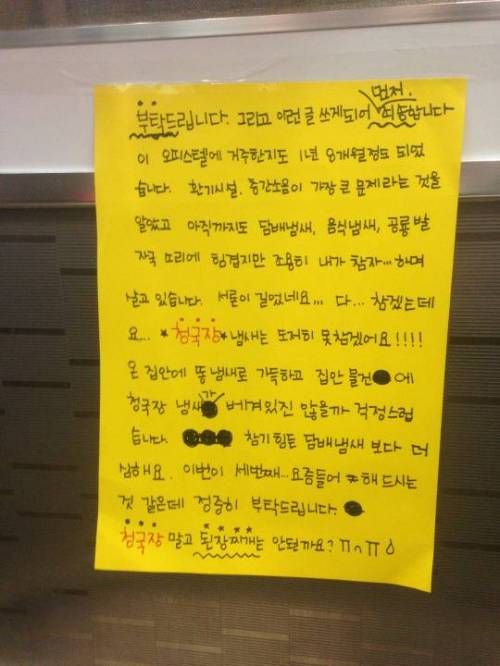 부탁드립니다. 그리고 이런 글 쓰게되어 먼저. 죄송합니다
이 오피스텔에 거주한지도 1년 8개월정도 되었
습니다. 환기시설, 층간소음이 가장 큰 문제라는 것을
알았고 아직까지도 담배냄새, 음식냄새, 공룡발
자국 소리에 힘겹지만 조용히 내가 참자...하며
살고 있습니다. 서론이 길었네요... 다... 참겠는데
요... *청국장* 냄새는 도저히 못참겠어요!!!!
온 집안에 똥냄새로 가득하고 집안 물건에
청국장 냄새가 베겨있진 않을까 걱정스럽
습니다. 참기 힘든 담배냄새 보다 더
심해요. 이번이 세번째...요즘들어 해드시는
것 같은데 정중히 부탁드립니다.
청국장 말고 된장찌개는 안될까요? ㅠㅠ